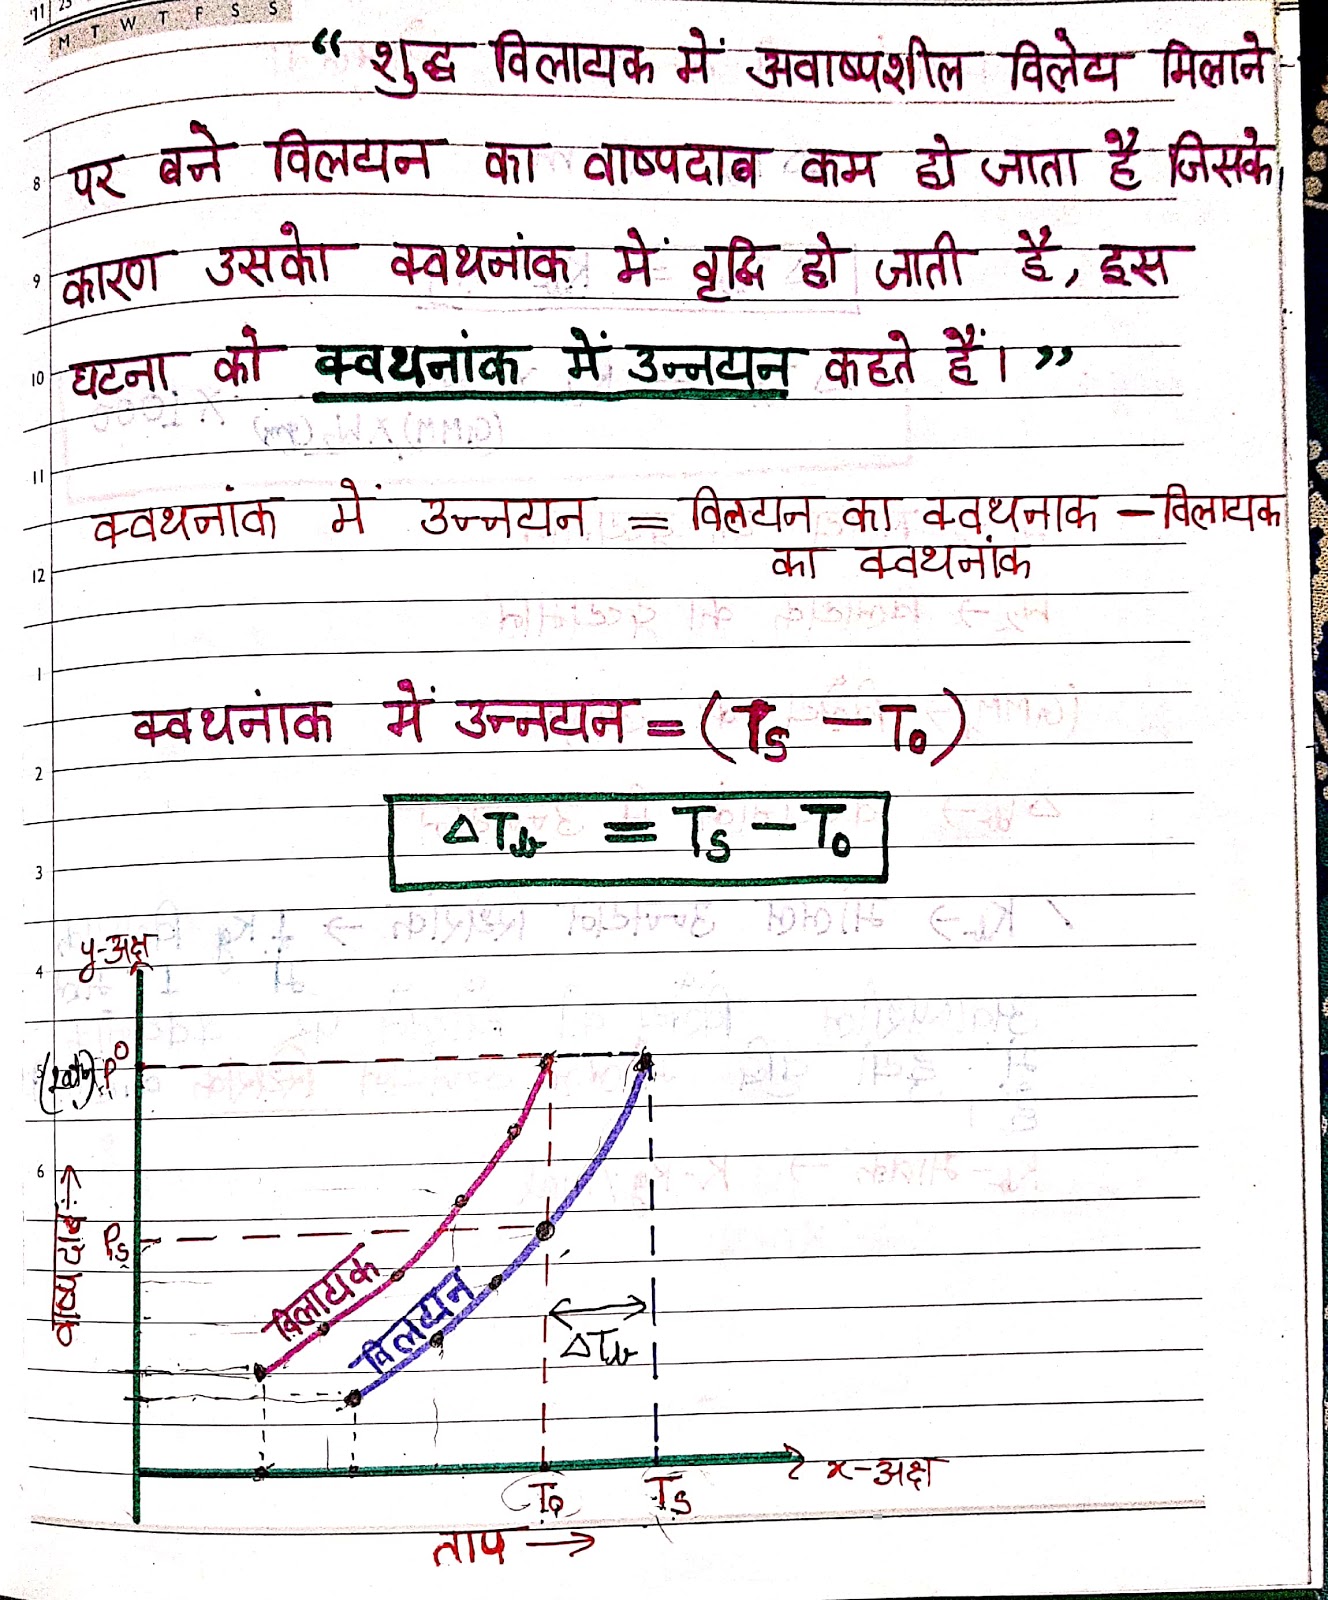 '11 23
M T W T F S S
“ शुद्ध विलायक में अवाष्पशील विलेय मिलाने
8 पर बने विलयन का वाष्पदाब कम हो जाता है जिसके
9 कारण उसके क्वथनांक में वृद्धि हो जाती है, इस
10 घटना को क्वथनांक में उन्नयन कहते हैं। ”
11
क्वथनांक में उन्नयन = विलयन का क्वथनाक - विलायक
12 का क्वथनांक
1
क्वथनांक में उन्नयन = (Ts - To)
2
ΔTb = Ts - To
3
y-अक्ष
4
5 P°
6
वाष्प दाब →
Ps
विलायक
विलयन
ΔTb
x-अक्ष
To Ts
ताप →